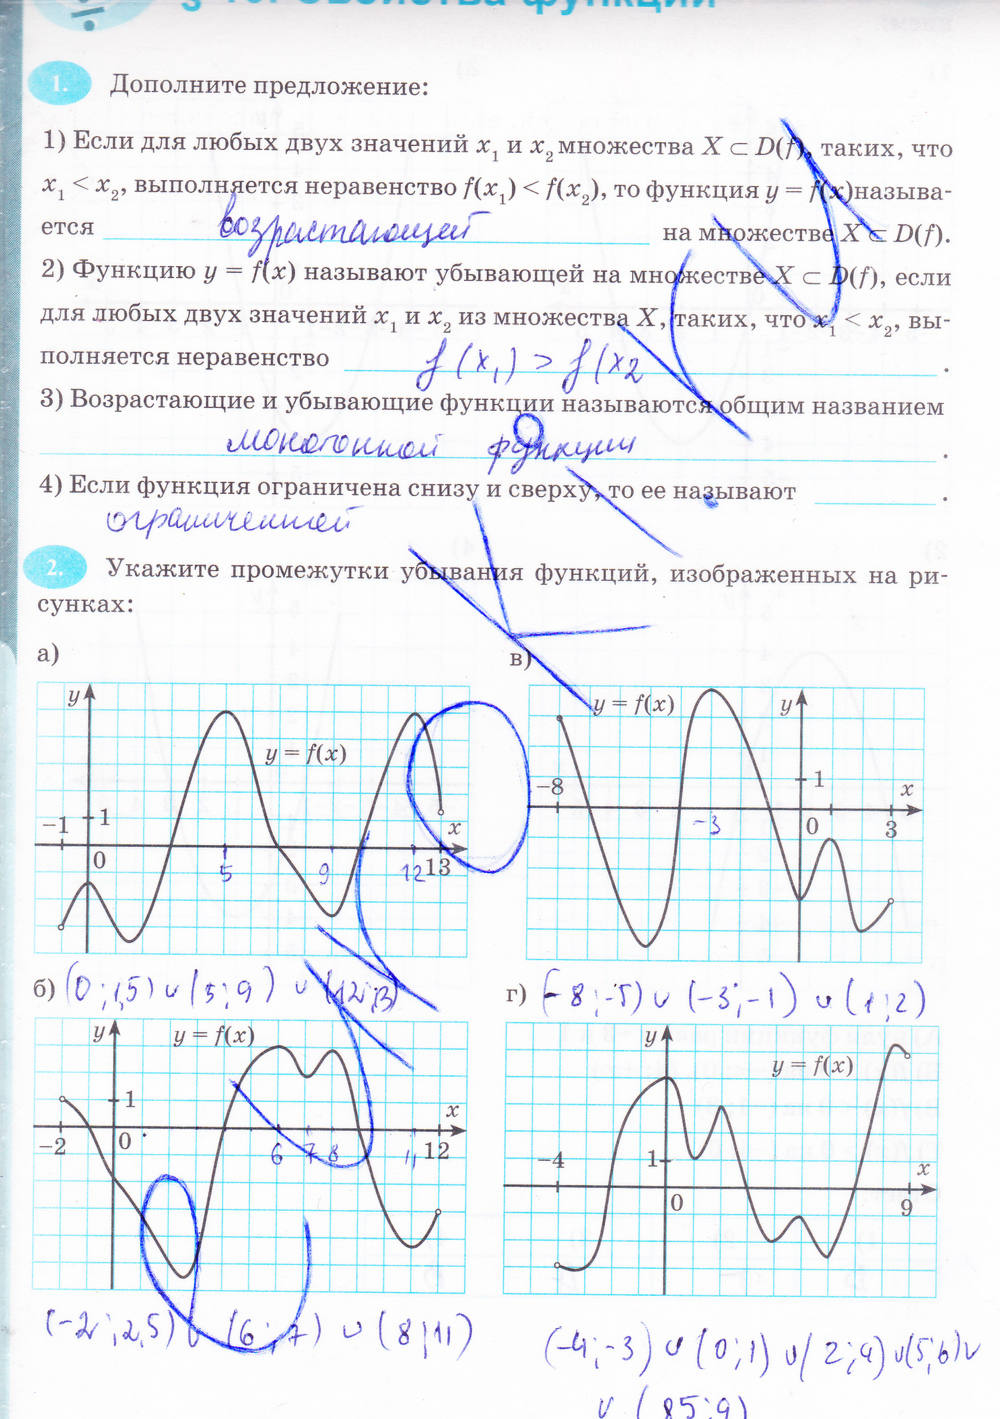 § 10. Свойства функции
1. Дополните предложение:
1) Если для любых двух значений x₁ и x₂ множества X ⊂ D(f), таких, что
x₁ < x₂, выполняется неравенство f(x₁) < f(x₂), то функция y = f(x)называ-
ется возрастающей на множестве X ⊂ D(f).
2) Функцию y = f(x) называют убывающей на множестве X ⊂ D(f), если
для любых двух значений x₁ и x₂ из множества X, таких, что x₁ < x₂, вы-
полняется неравенство f(x₁) > f(x₂ .
3) Возрастающие и убывающие функции называются общим названием
монотонной функции .
4) Если функция ограничена снизу и сверху, то ее называют .
ограниченной
2. Укажите промежутки убывания функций, изображенных на ри-
сунках:
а)
y
y = f(x)
1
-1
x
0
5
9
12
13
(0;1,5) ∪ (5;9) ∪ (12;13)
в)
y = f(x)
y
-8
1
x
-3
0
3
(-8;-5) ∪ (-3;-1) ∪ (1;2)
б)
y
y = f(x)
1
x
-2
0
6
7
8
11
12
(-2;2,5) ∪ (6;7) ∪ (8;11)
г)
y
y = f(x)
-4
1
x
0
9
(-4;-3) ∪ (0;1) ∪ (2;4) ∪ (5;6) ∪
∪ (8,5;9)